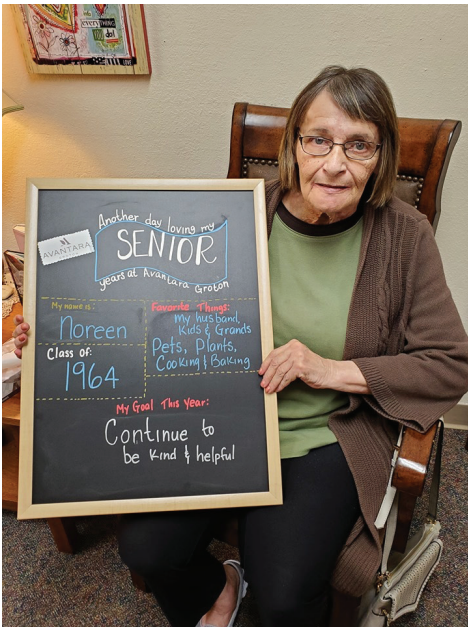 everyTHING
do!
Another day loving my
AVANTARA
SENIOR
years at Avantara Groton
My name is:
Noreen
Class of:
1964
Favorite Things:
My husband,
Kids & Grands
Pets, Plants,
Cooking & Baking
My Goal This Year:
Continue to
be kind & helpful